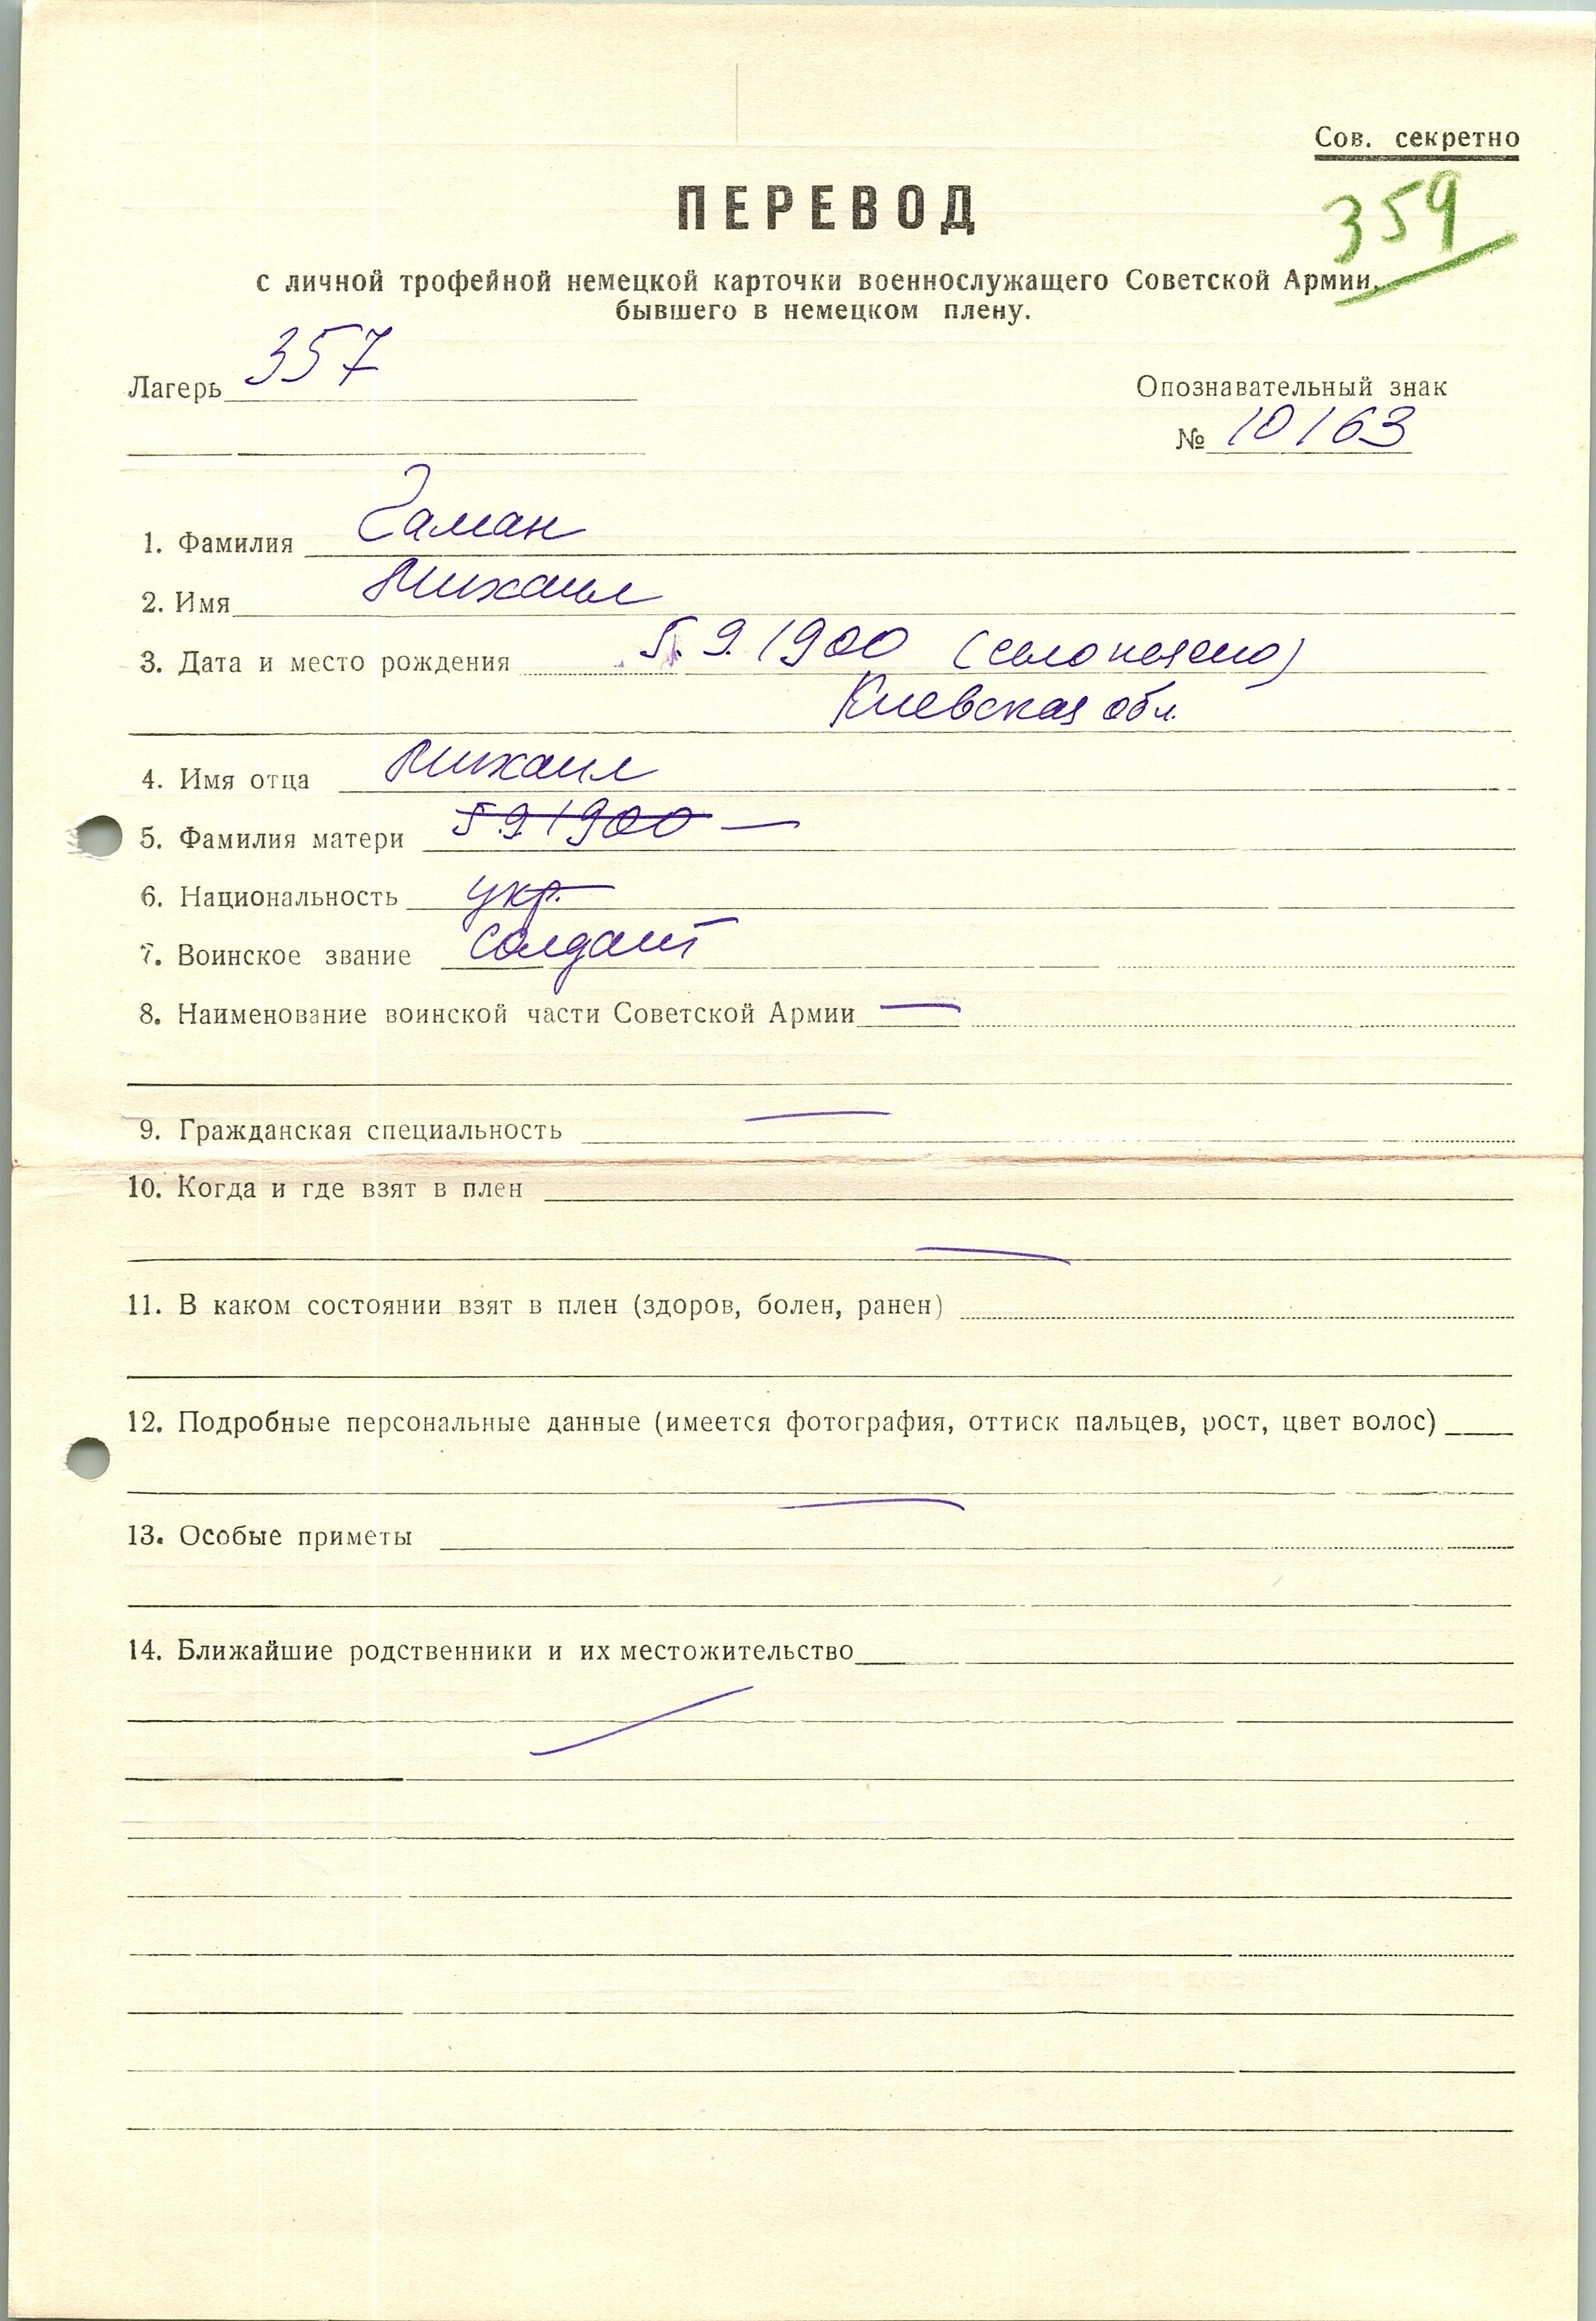 Сов. секретно
ПЕРЕВОД
359
с личной трофейной немецкой карточки военнослужащего Советской Армии,
бывшего в немецком плену.
Лагерь 357
Опознавательный знак
№ 10163
1. Фамилия Гаман
2. Имя Михаил
3. Дата и место рождения 5.9.1900 (село
Киевская обл.
4. Имя отца Михаил
5. Фамилия матери 5 9 1900 —
6. Национальность укр.
7. Воинское звание солдат
8. Наименование воинской части Советской Армии —
9. Гражданская специальность —
10. Когда и где взят в плен
—
11. В каком состоянии взят в плен (здоров, болен, ранен)
12. Подробные персональные данные (имеется фотография, оттиск пальцев, рост, цвет волос)
—
13. Особые приметы
14. Ближайшие родственники и их местожительство